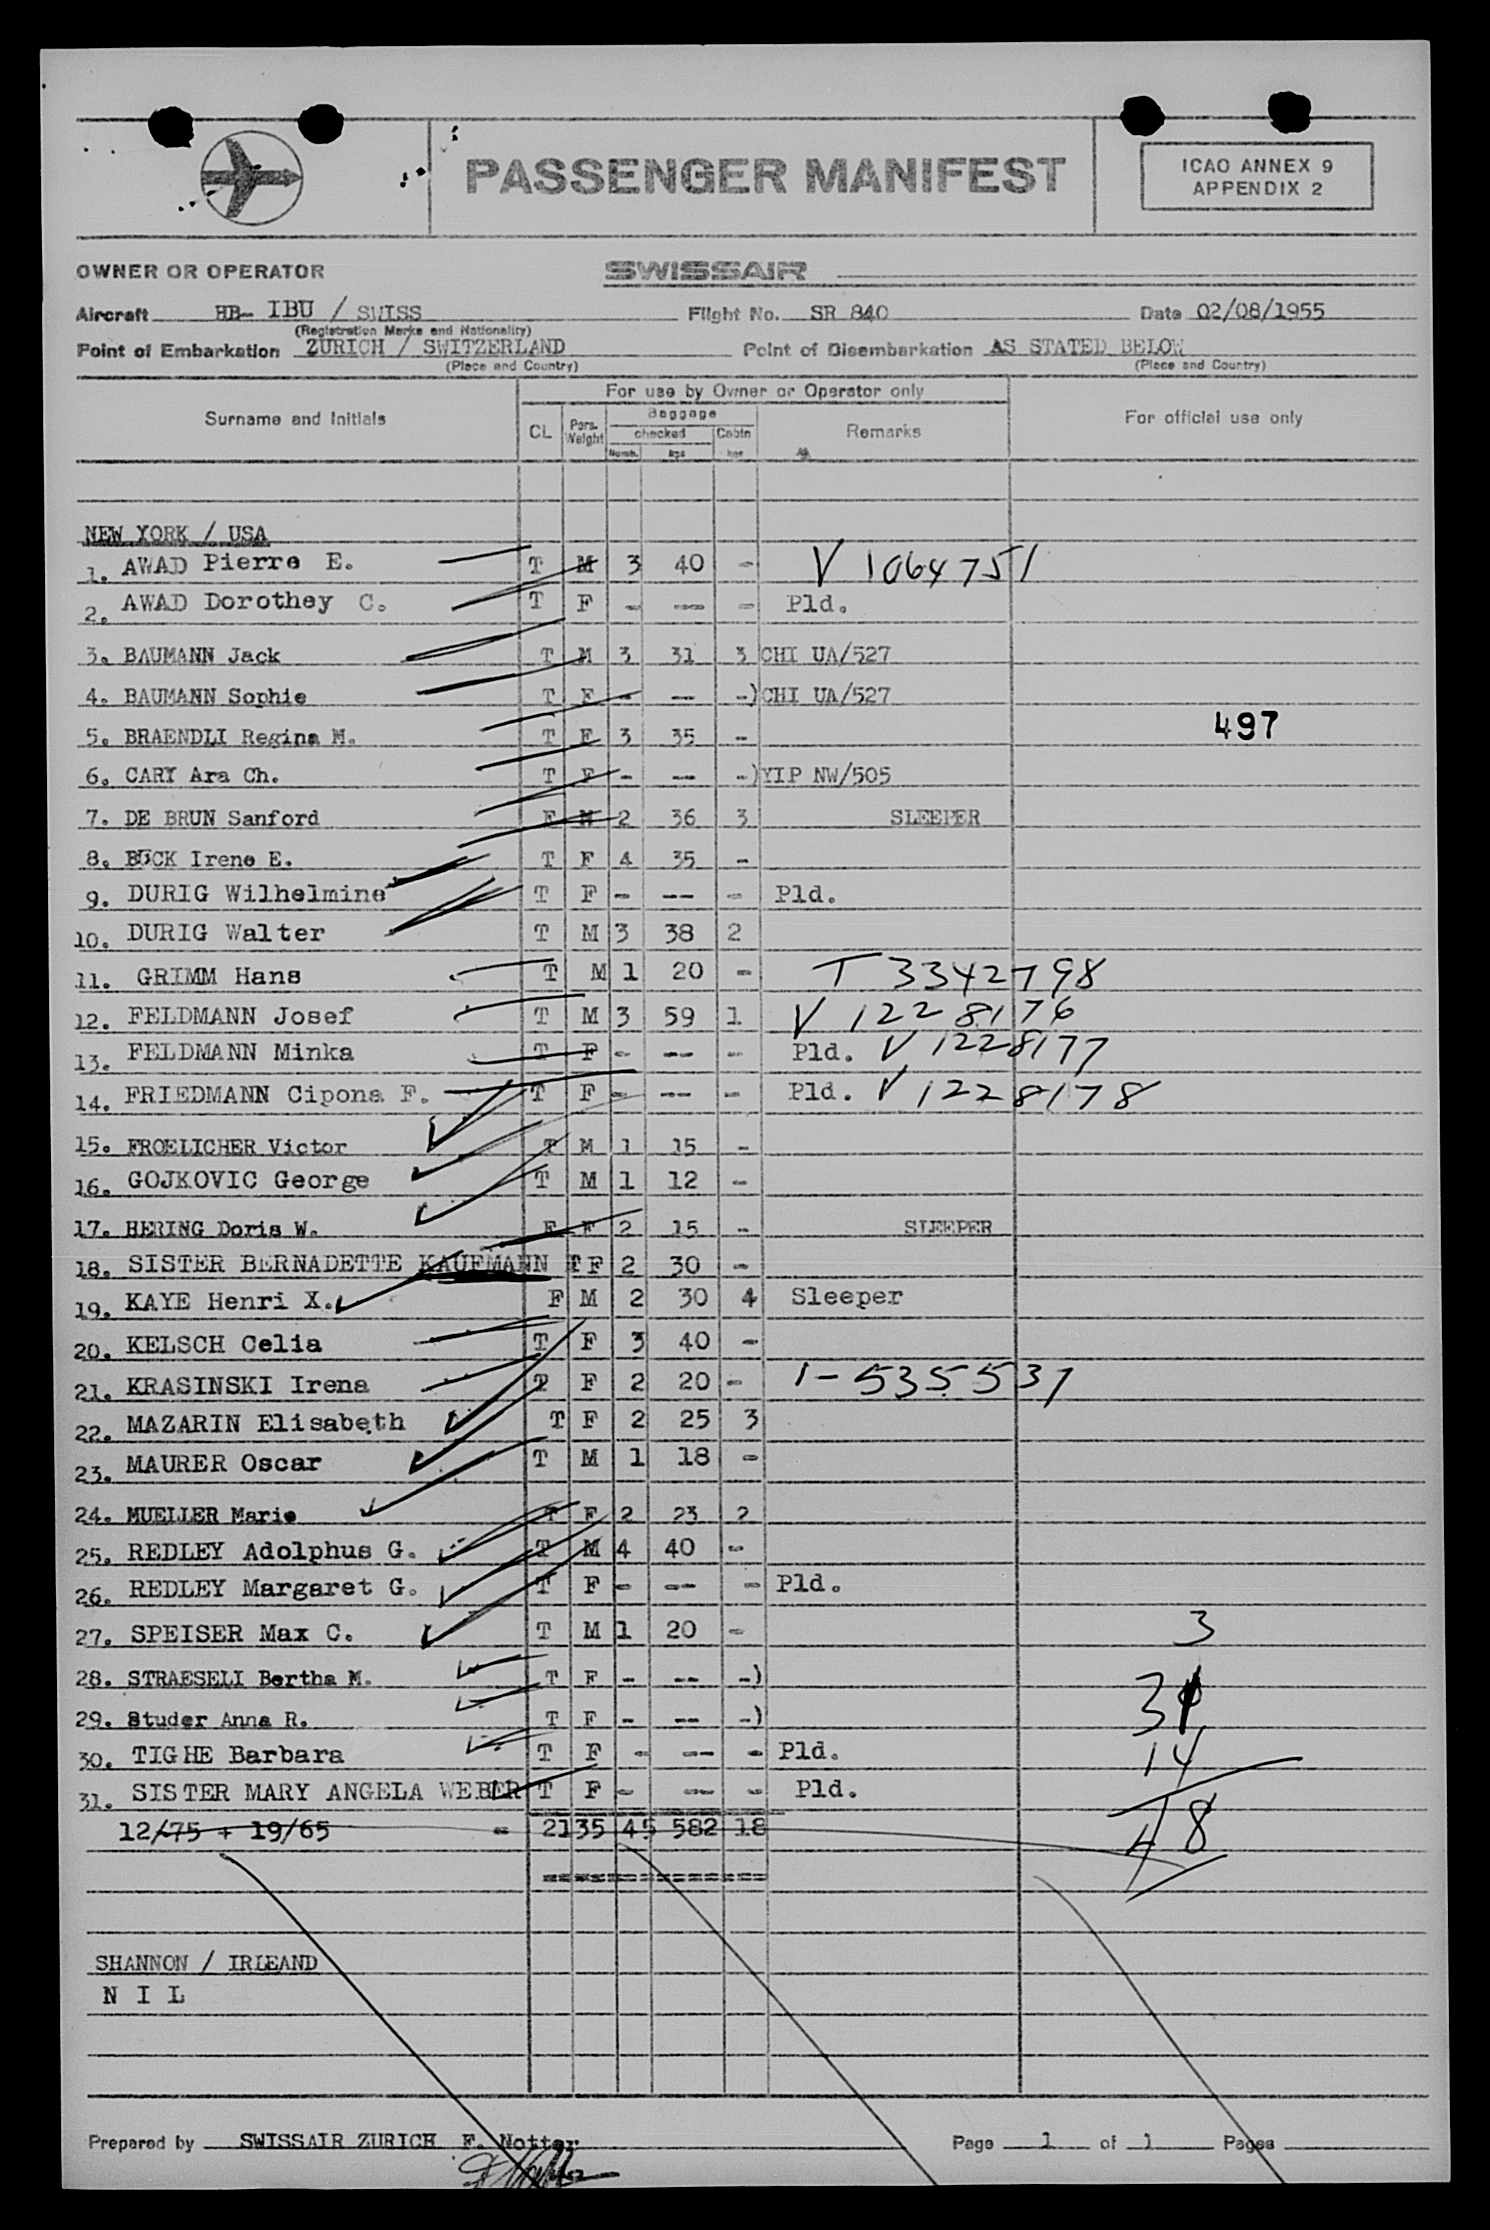 PASSENGER MANIFEST
ICAO ANNEX 9
APPENDIX 2
OWNER OR OPERATOR SWISSAIR
Aircraft HB- IBU / SWISS Flight No. SR 840 Date 02/08/1955
(Registration Marks and Nationality)
Point of Embarkation ZURICH / SWITZERLAND Point of Disembarkation AS STATED BELOW
(Place and Country) (Place and Country)
For use by Owner or Operator only
Surname and Initials CL Pers. Weight Baggage checked Numb. kgs Cabin kgs Remarks For official use only
NEW YORK / USA
1. AWAD Pierre E. T M 3 40 - V 1064751
2. AWAD Dorothey C. T F - -- - Pld.
3. BAUMANN Jack T M 3 31 3 CHI UA/527
4. BAUMANN Sophie T F - -- -) CHI UA/527
497
5. BRAENDLI Regina M. T F 3 35 -
6. CARY Ara Ch. T F - -- -) YIP NW/505
7. DE BRUN Sanford F M 2 36 3 SLEEPER
8. BUCK Irene E. T F 4 35 -
9. DURIG Wilhelmine T F - -- - Pld.
10. DURIG Walter T M 3 38 2
11. GRIMM Hans T M 1 20 - T 3342798
12. FELDMANN Josef T M 3 59 1 V 1228176
13. FELDMANN Minka T F - -- - Pld. V 1228177
14. FRIEDMANN Cipona F. T F - -- - Pld. V 1228178
15. FROELICHER Victor T M 1 15 -
16. GOJKOVIC George T M 1 12 -
17. HERING Doris W. F F 2 15 - SLEEPER
18. SISTER BERNADETTE KAUFMANN T F 2 30 -
19. KAYE Henri X. F M 2 30 4 Sleeper
20. KELSCH Celia T F 3 40 -
21. KRASINSKI Irena T F 2 20 - 1-535537
22. MAZARIN Elisabeth T F 2 25 3
23. MAURER Oscar T M 1 18 -
24. MUELLER Marie T F 2 23 2
25. REDLEY Adolphus G. T M 4 40 -
26. REDLEY Margaret G. T F - -- - Pld.
27. SPEISER Max C. T M 1 20 - 3
28. STRAESELI Bertha M. T F - -- -)
29. Studer Anna R. T F - -- -) 31
30. TIGHE Barbara T F - -- - Pld. 14
31. SISTER MARY ANGELA WEBER T F - -- - Pld.
12/75 + 19/65 = 2135 45 582 18 48
==============
SHANNON / IRLEAND
N I L
Prepared by SWISSAIR ZURICH F. Notter Page 1 of 1 Pages